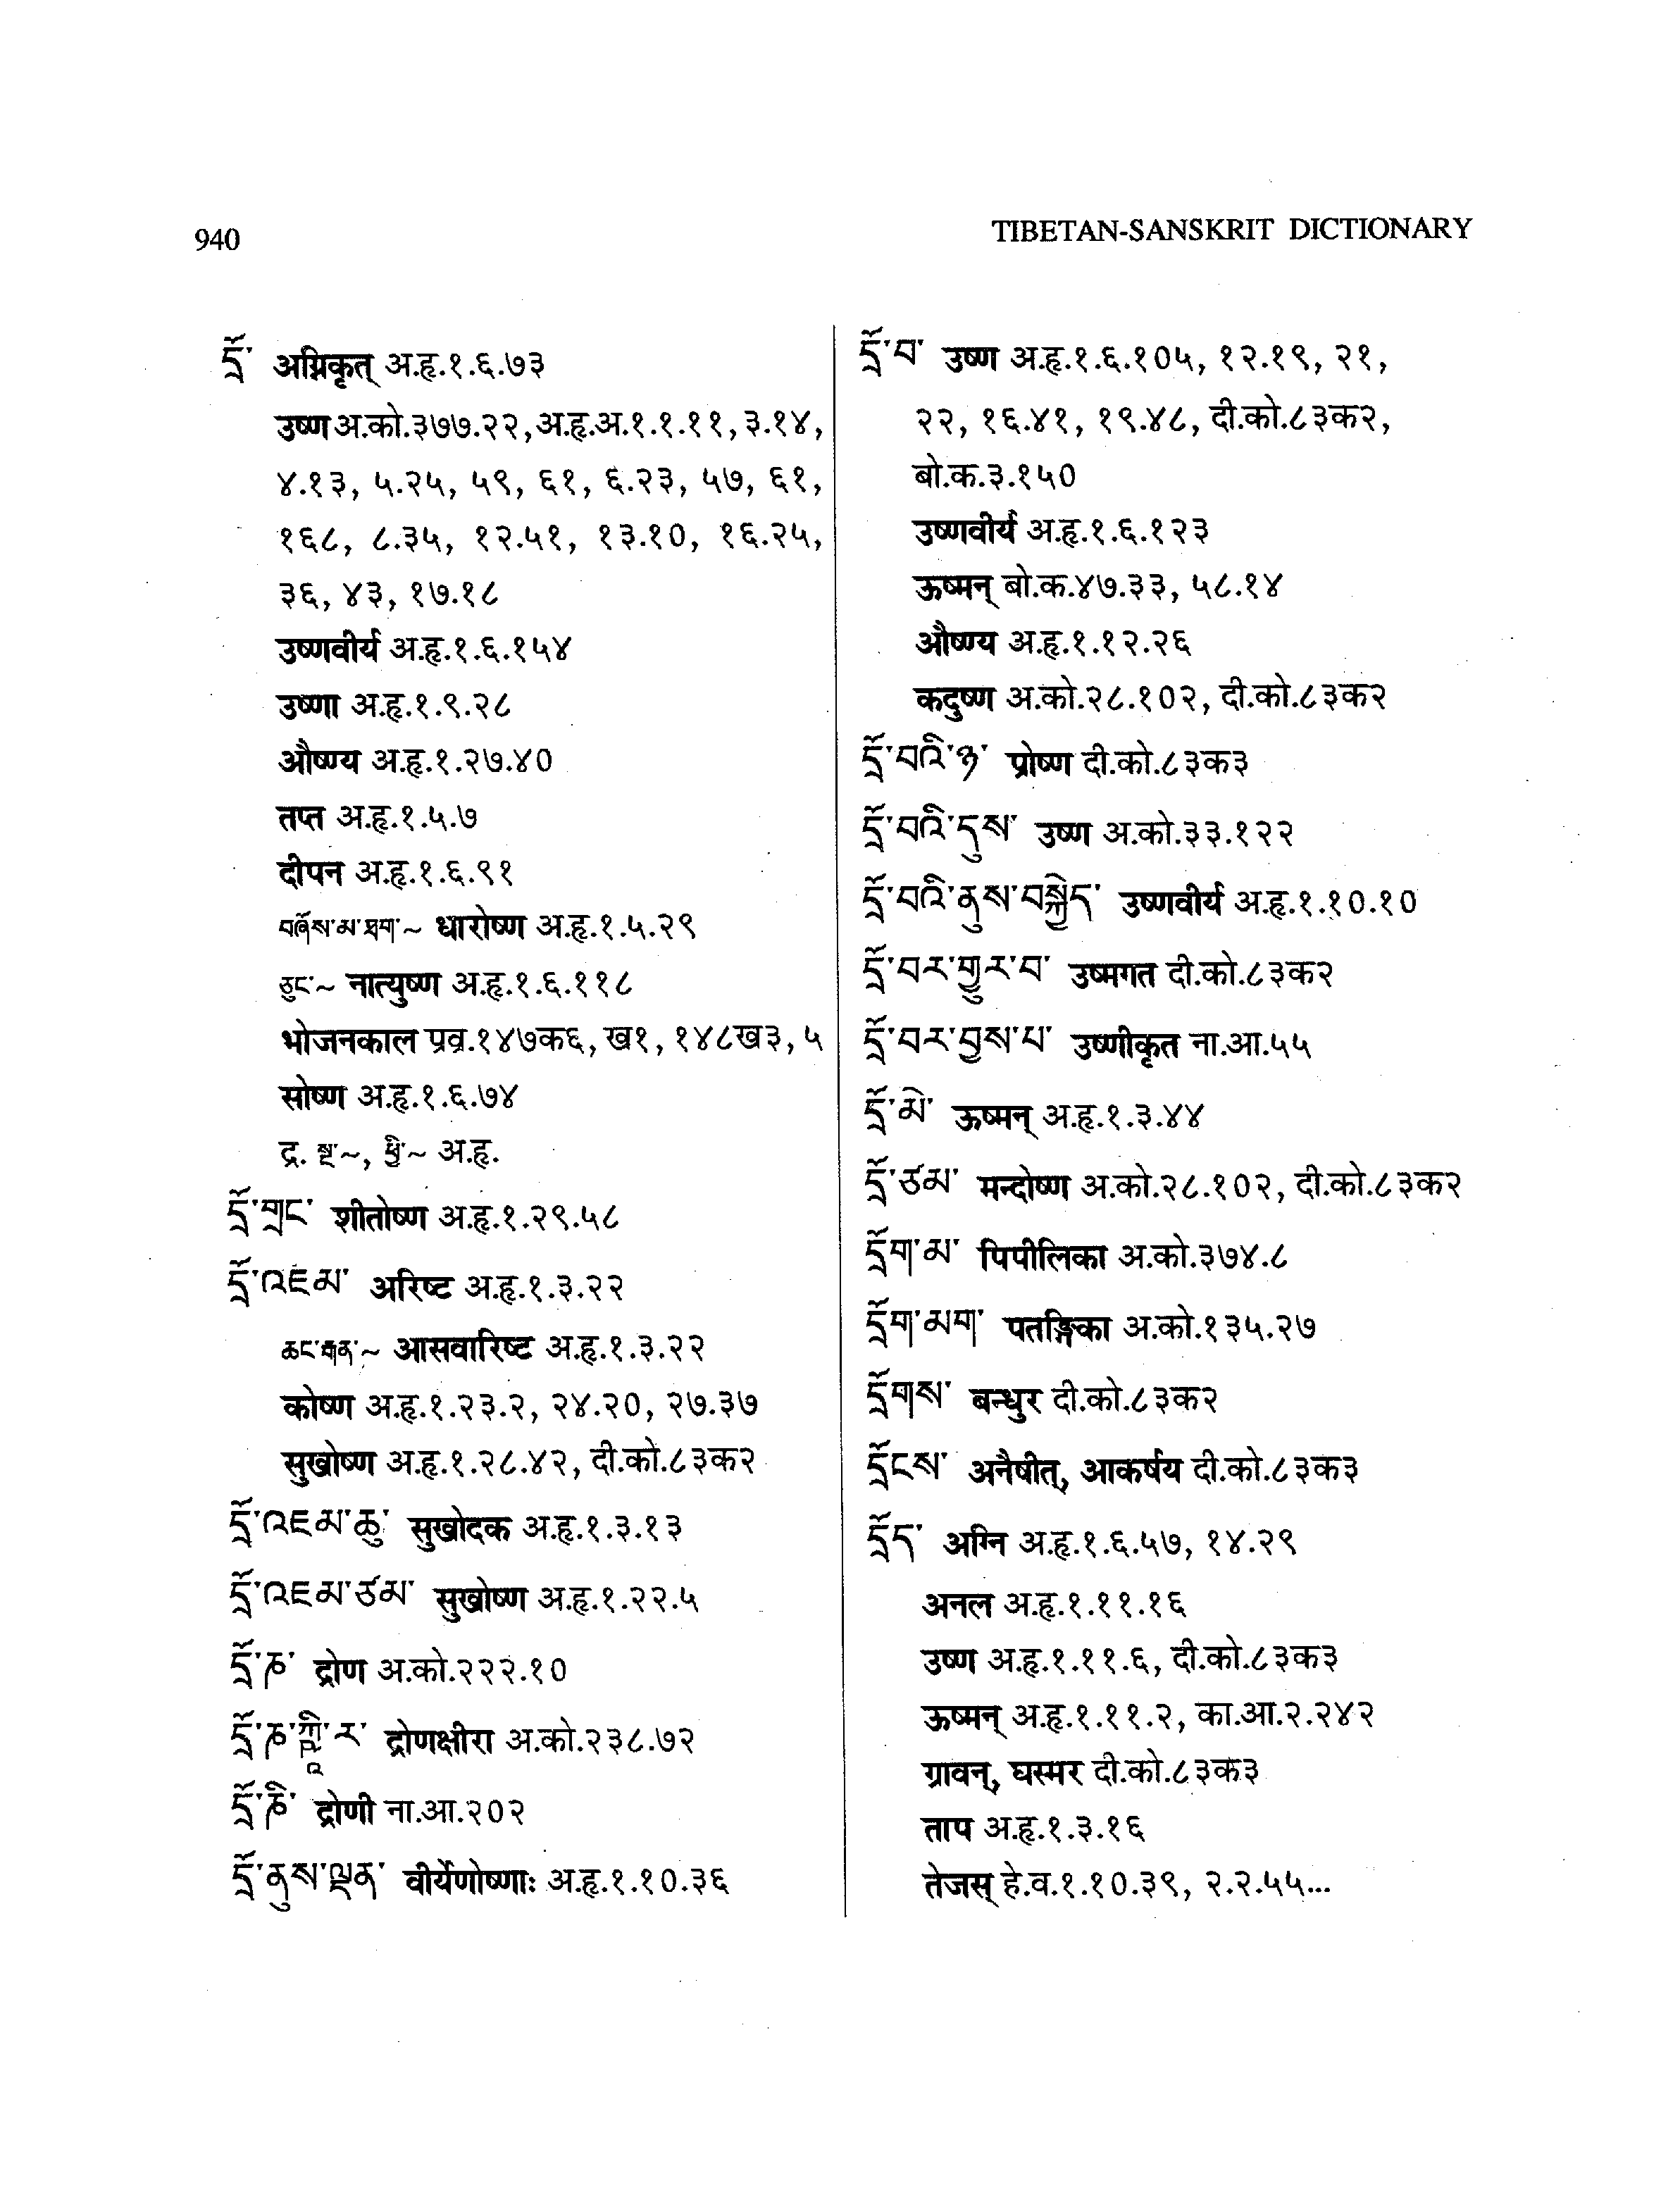 940
TIBETAN-SANSKRIT DICTIONARY
དྲོ་ अग्निकृत् अ.हृ.१.६.७३
उष्ण अ.को.३७७.२२, अ.हृ.अ.१.१.११, ३.१४,
४.१३, ५.२५, ५९, ६१, ६.२३, ५७, ६१,
१६८, ८.३५, १२.५१, १३.१०, १६.२५,
३६, ४३, १७.१८
उष्णवीर्य अ.हृ.१.६.१५४
उष्णा अ.हृ.१.९.२८
औष्ण्य अ.हृ.१.२७.४०
तप्त अ.हृ.१.५.७
दीपन अ.हृ.१.६.९१
བཞོས་མ་ཐག་~ धारोष्ण अ.हृ.१.५.२९
ཅུང་~ नात्युष्ण अ.हृ.१.६.११८
भोजनकाल प्रव्र.१४७क६, ख१, १४८ख३, ५
सोष्ण अ.हृ.१.६.७४
द्र. སྔ་~, ཕྱི་~ अ.हृ.
དྲོ་གྲང་ शीतोष्ण अ.हृ.१.२९.५८
དྲོ་འཇམ་ अरिष्ट अ.हृ.१.३.२२
ཆང་རྒན་~ आसवारिष्ट अ.हृ.१.३.२२
कोष्ण अ.हृ.१.२३.२, २४.२०, २७.३७
सुखोष्ण अ.हृ.१.२८.४२, दी.को.८३क२
དྲོ་འཇམ་ཆུ་ सुखोदक अ.हृ.१.३.१३
དྲོ་འཇམ་ཙམ་ सुखोष्ण अ.हृ.१.२२.५
དྲོ་ཎ་ द्रोण अ.को.२२२.१०
དྲོ་ཎ་ཀྵཱི་ར་ द्रोणक्षीरा अ.को.२३८.७२
དྲོ་ཎི་ द्रोणी ना.आ.२०२
དྲོ་ནུས་ལྡན་ वीर्येणोष्णाः अ.हृ.१.१०.३६
དྲོ་བ་ उष्ण अ.हृ.१.६.१०५, १२.१९, २१,
२२, १६.४१, १९.४८, दी.को.८३क२,
बो.क.३.१५०
उष्णवीर्य अ.हृ.१.६.१२३
ऊष्मन् बो.क.४७.३३, ५८.१४
औष्ण्य अ.हृ.१.१२.२६
कदुष्ण अ.को.२८.१०२, दी.को.८३क२
དྲོ་བའི་ཉ་ प्रोष्ण दी.को.८३क३
དྲོ་བའི་དུས་ उष्ण अ.को.३३.१२२
དྲོ་བའི་ནུས་བསྐྱེད་ उष्णवीर्य अ.हृ.१.१०.१०
དྲོ་བར་གྱུར་བ་ उष्मगत दी.को.८३क२
དྲོ་བར་བྱས་པ་ उष्णीकृत ना.आ.५५
དྲོ་མེ་ ऊष्मन् अ.हृ.१.३.४४
དྲོ་ཙམ་ मन्दोष्ण अ.को.२८.१०२, दी.को.८३क२
དྲོག་མ་ पिपीलिका अ.को.३७४.८
དྲོག་མག་ पतङ्गिका अ.को.१३५.२७
དྲོགས་ बन्धुर दी.को.८३क२
དྲོངས་ अनैषीत्, आकर्षय दी.को.८३क३
དྲོད་ अग्नि अ.हृ.१.६.५७, १४.२९
अनल अ.हृ.१.११.१६
उष्ण अ.हृ.१.११.६, दी.को.८३क३
ऊष्मन् अ.हृ.१.११.२, का.आ.२.२४२
ग्रावन्, घस्मर दी.को.८३क३
ताप अ.हृ.१.३.१६
तेजस् हे.व.१.१०.३९, २.२.५५...